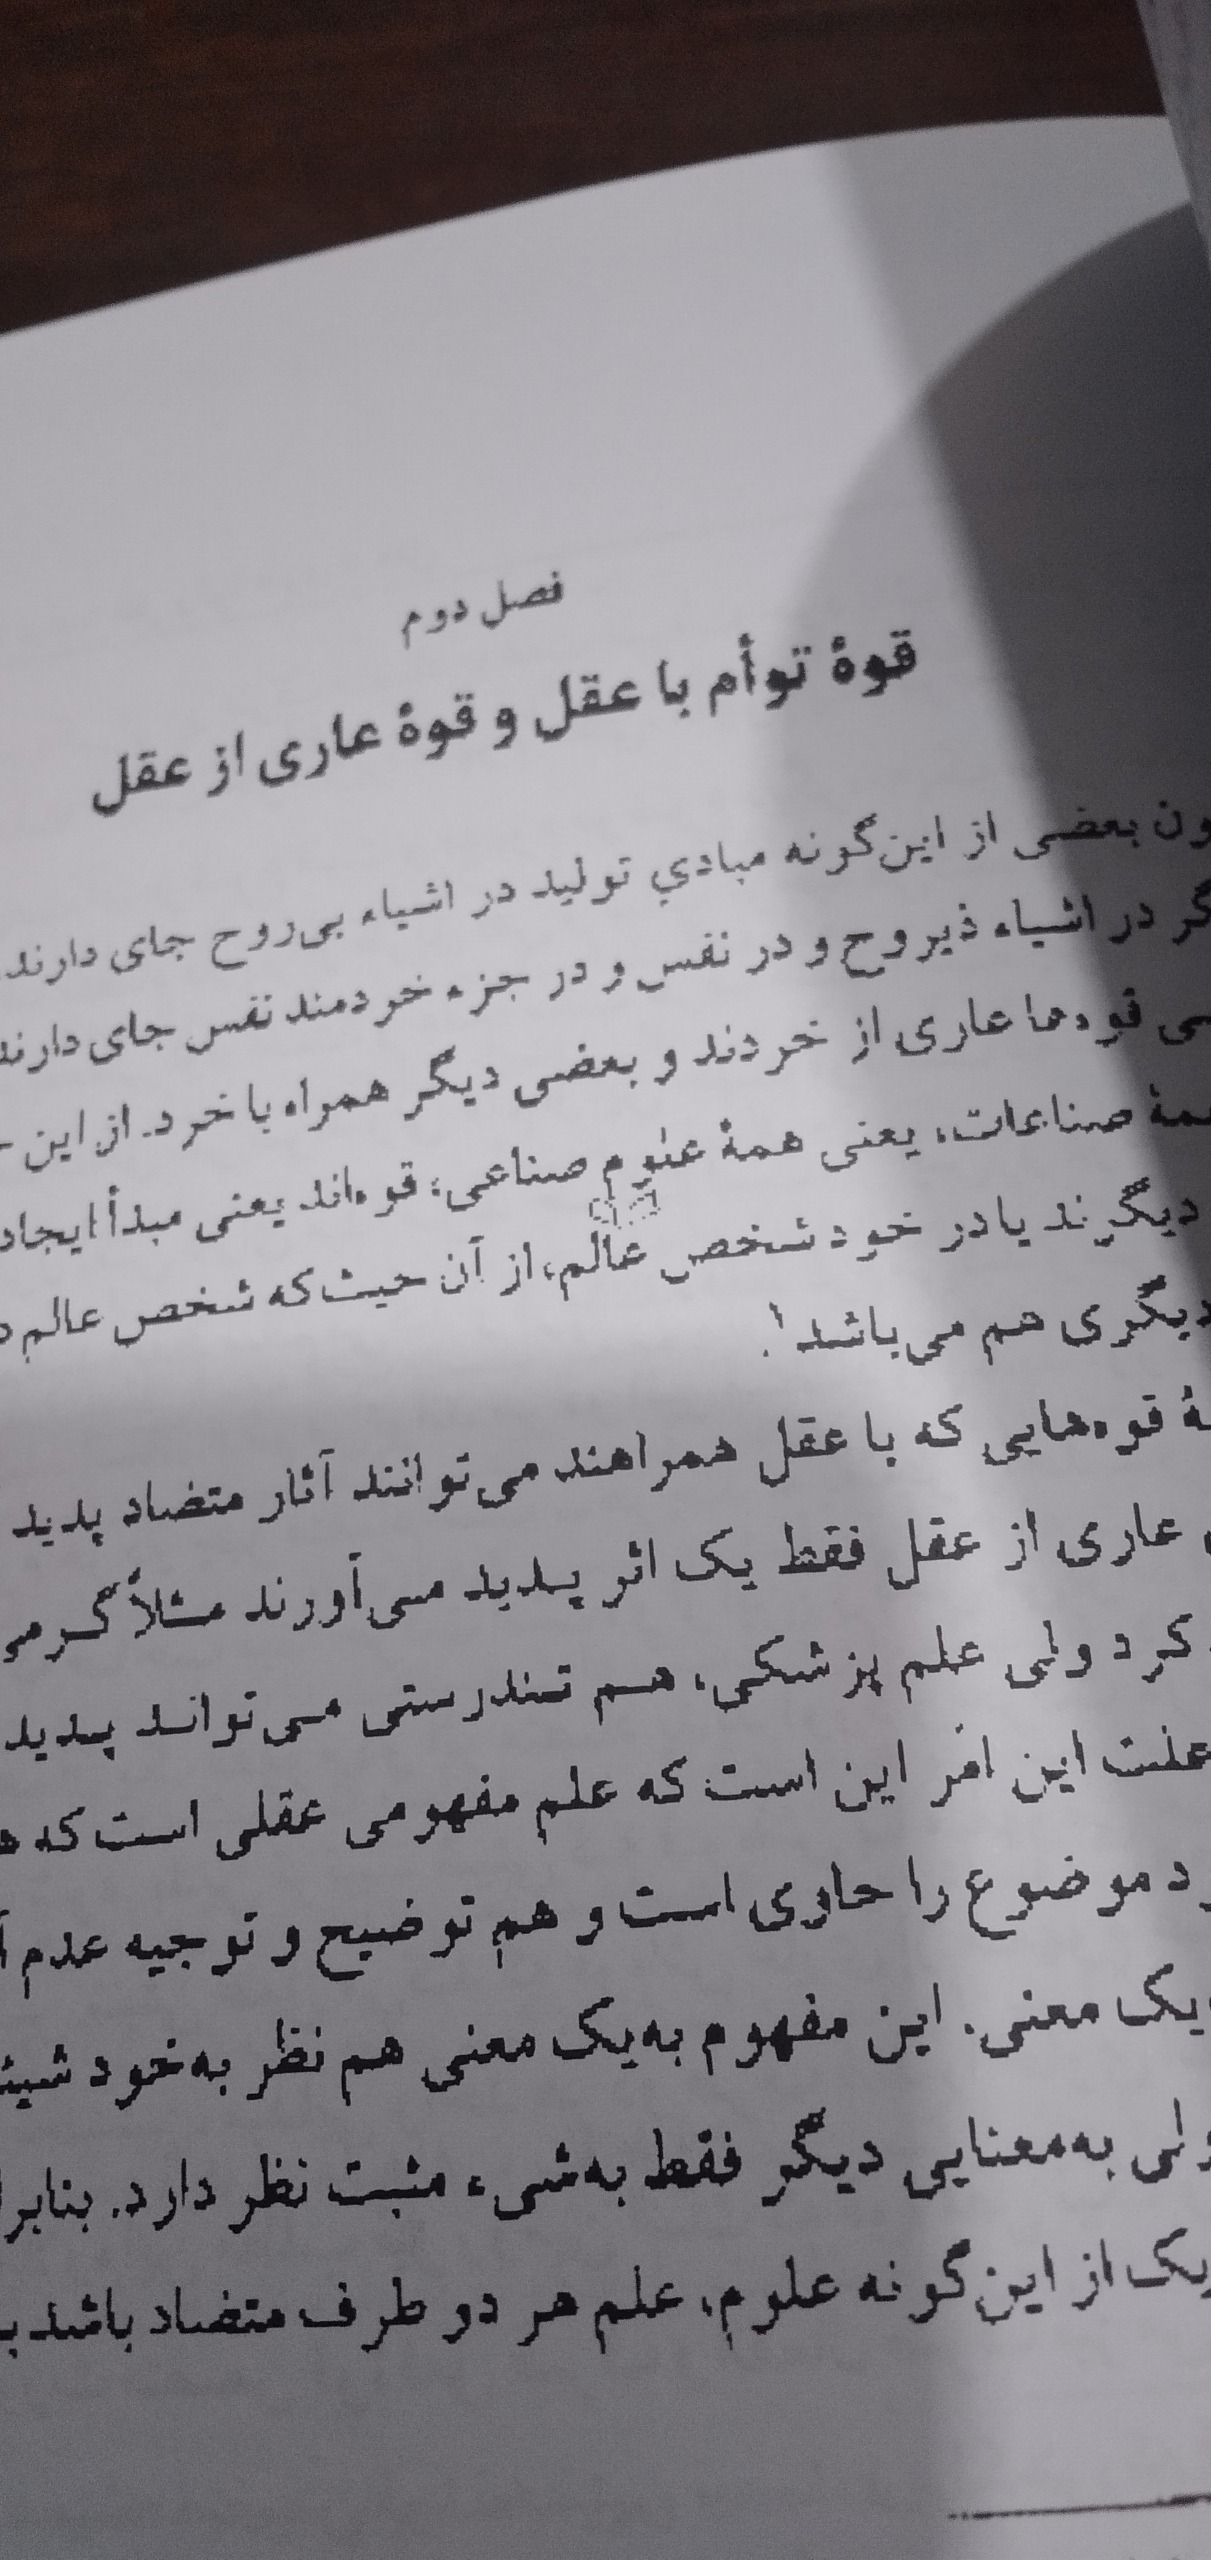 فصل دوم
قوهٔ توأم با عقل و قوهٔ عاری از عقل
بعضی از این‌گونه مبادیِ تولید در اشیاء بی‌روح جای دارند
در اشیاء ذیروح و در نفس و در جزء خردمند نفس جای دارند
قوه‌ها عاری از خردند و بعضی دیگر همراه با خرد. از این
صناعات، یعنی همهٔ علوم صناعی، قوه‌اند یعنی مبدأ ایجاد
دیگرند یا در خود شخص عالم، از آن حیث که شخص عالم
دیگری هم می‌باشد۱.
قوه‌هایی که با عقل همراهند می‌توانند آثار متضاد پدید
عاری از عقل فقط یک اثر پدید می‌آورند مثلاً گرمی
کرد ولی علم پزشکی، هم تندرستی می‌تواند پدید
علت این امر این است که علم مفهومی عقلی است که
موضوع را حاوی است و هم توضیح و توجیه عدم
یک معنی. این مفهوم به‌یک معنی هم نظر به‌خود
ولی به‌معنایی دیگر فقط به‌شیء مثبت نظر دارد.
یک از این‌گونه علوم، علم هر دو طرف متضاد باشد